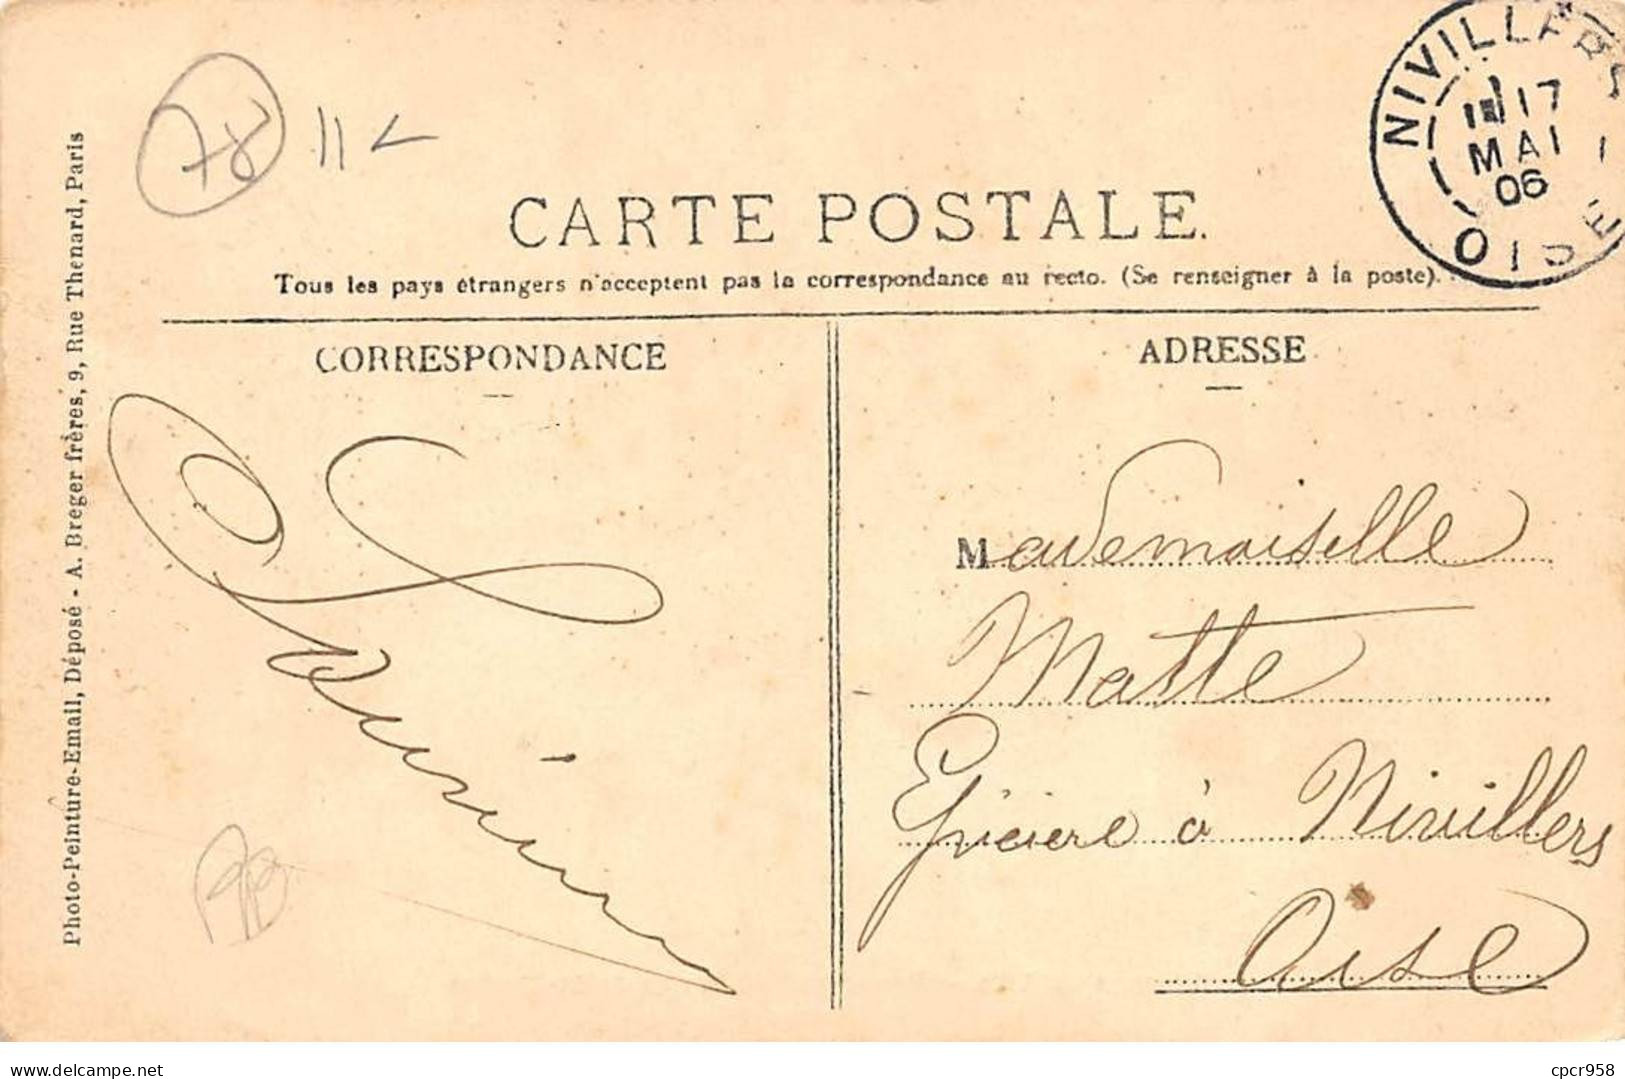 NIVILLERS
17
MAI
06
OISE
78
11
CARTE POSTALE.
Tous les pays étrangers n'acceptent pas la correspondance au recto. (Se renseigner à la poste).
CORRESPONDANCE
ADRESSE
Photo-Peinture-Email, Déposé - A. Breger frères, 9, Rue Thenard, Paris
Mademoiselle
Matte
Epicière à Nivillers
Oise
cpcr958